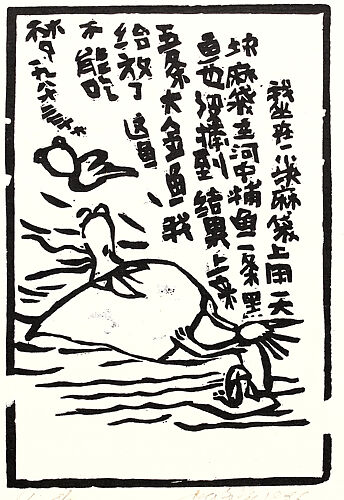 我坐在一块麻袋上用一大
块麻袋在河中捕鱼一条黑
鱼也没捕到结果上来
五条大金鱼我
给放了这鱼
不能吃